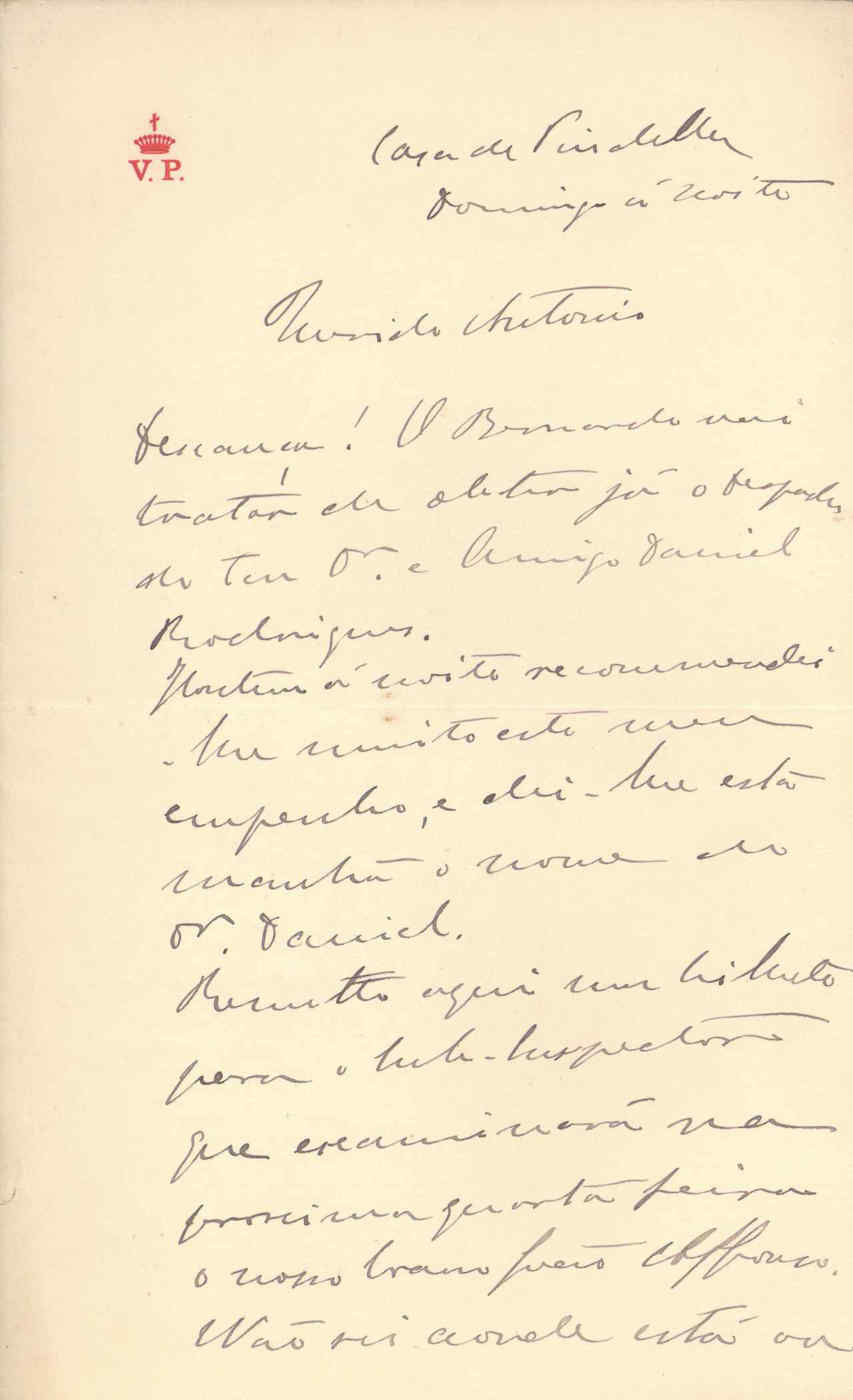 V. P.
Casa de Pindella
Domingo á noite
Querido Antonio
Descança! O Bernardo vai
tratár de obter já o despacho
do teu Dr. e Amigo Daniel
Rodrigues.
Hontem á noite recommendei
-lhe muito este meu
empenho, e dei-lhe está
manhã o nome do
Dr. Daniel.
Remetto aqui um bilhete
para o Sub-Inspector
que examinará na
proxima quarta feira
o nosso bravo João Affonso.
Não sei aonde está ou